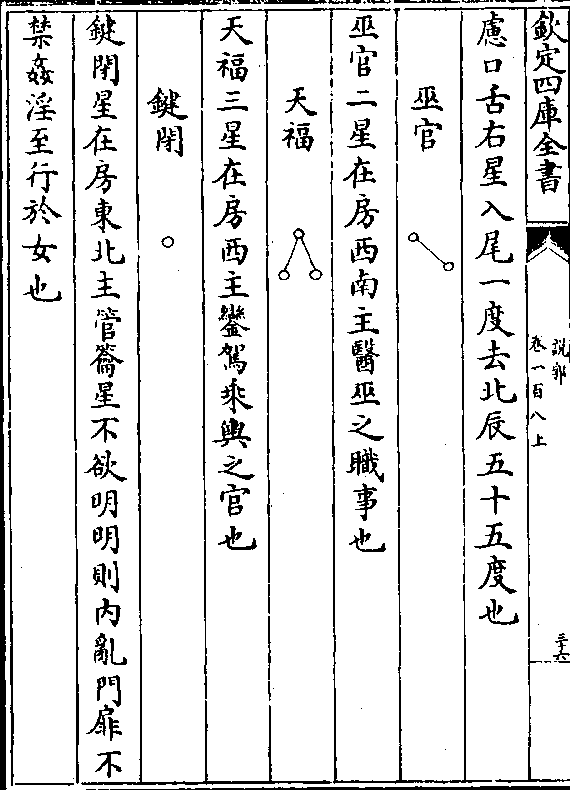 欽定四庫全書
說郛
卷一百八上
三十六
慮口舌右星入尾一度去北辰五十五度也
巫官
巫官二星在房西南主醫巫之職事也
天福
天福三星在房西主鑾駕乘輿之官也
鍵閉
鍵閉星在房東北主管籥星不欲明明則内亂門扉不
禁姦淫至行於女也